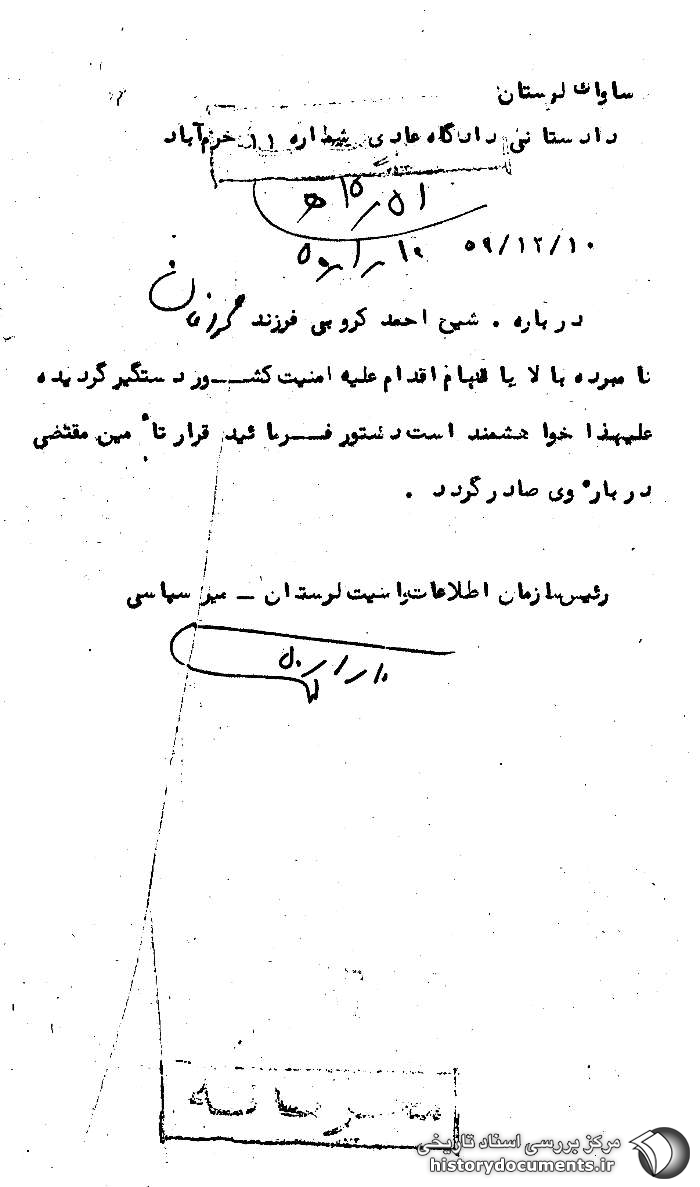 ساواك لرستان
دادستانی دادگاه عادی شماره ۱۱ خرم‌آباد
۵۹/۱۲/۱۰
درباره . شیخ احمد کروبی فرزند
نامبرده بالا با اتهام اقدام علیه امنیت کشــور دستگیر گردیده
علیهذا خواهشمند است دستور فــرمائید قرار تأمین مقتضی
درباره وی صادر گردد .
رئیس سازمان اطلاعات و امنیت لرستان ــ میر سپاسی
محرمانه
مرکز بررسی اسناد تاریخی
historydocuments.ir